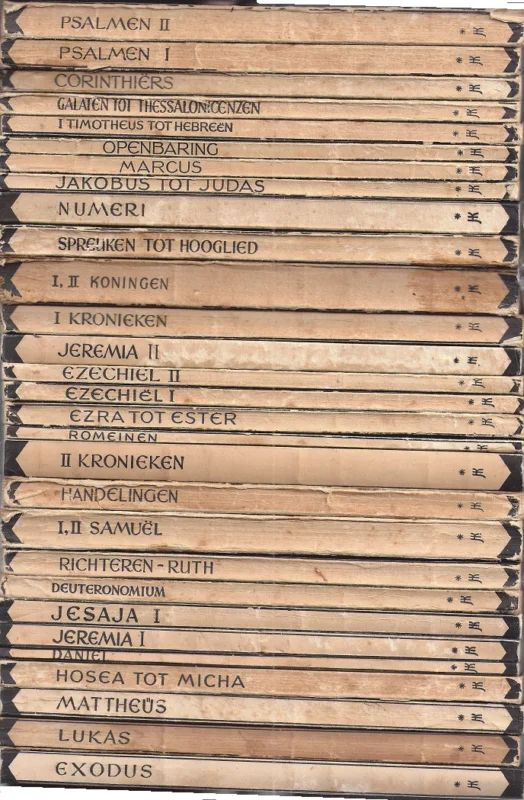 PSALMEN II
PSALMEN I
CORINTHIËRS
GALATEN TOT THESSALONICENZEN
I TIMOTHEUS TOT HEBREËN
OPENBARING
MARCUS
JAKOBUS TOT JUDAS
NUMERI
SPREUKEN TOT HOOGLIED
I, II KONINGEN
I KRONIEKEN
JEREMIA II
EZECHIËL II
EZECHIËL I
EZRA TOT ESTER
ROMEINEN
II KRONIEKEN
HANDELINGEN
I, II SAMUËL
RICHTEREN-RUTH
DEUTERONOMIUM
JESAJA I
JEREMIA I
DANIEL
HOSEA TOT MICHA
MATTHEÜS
LUKAS
EXODUS